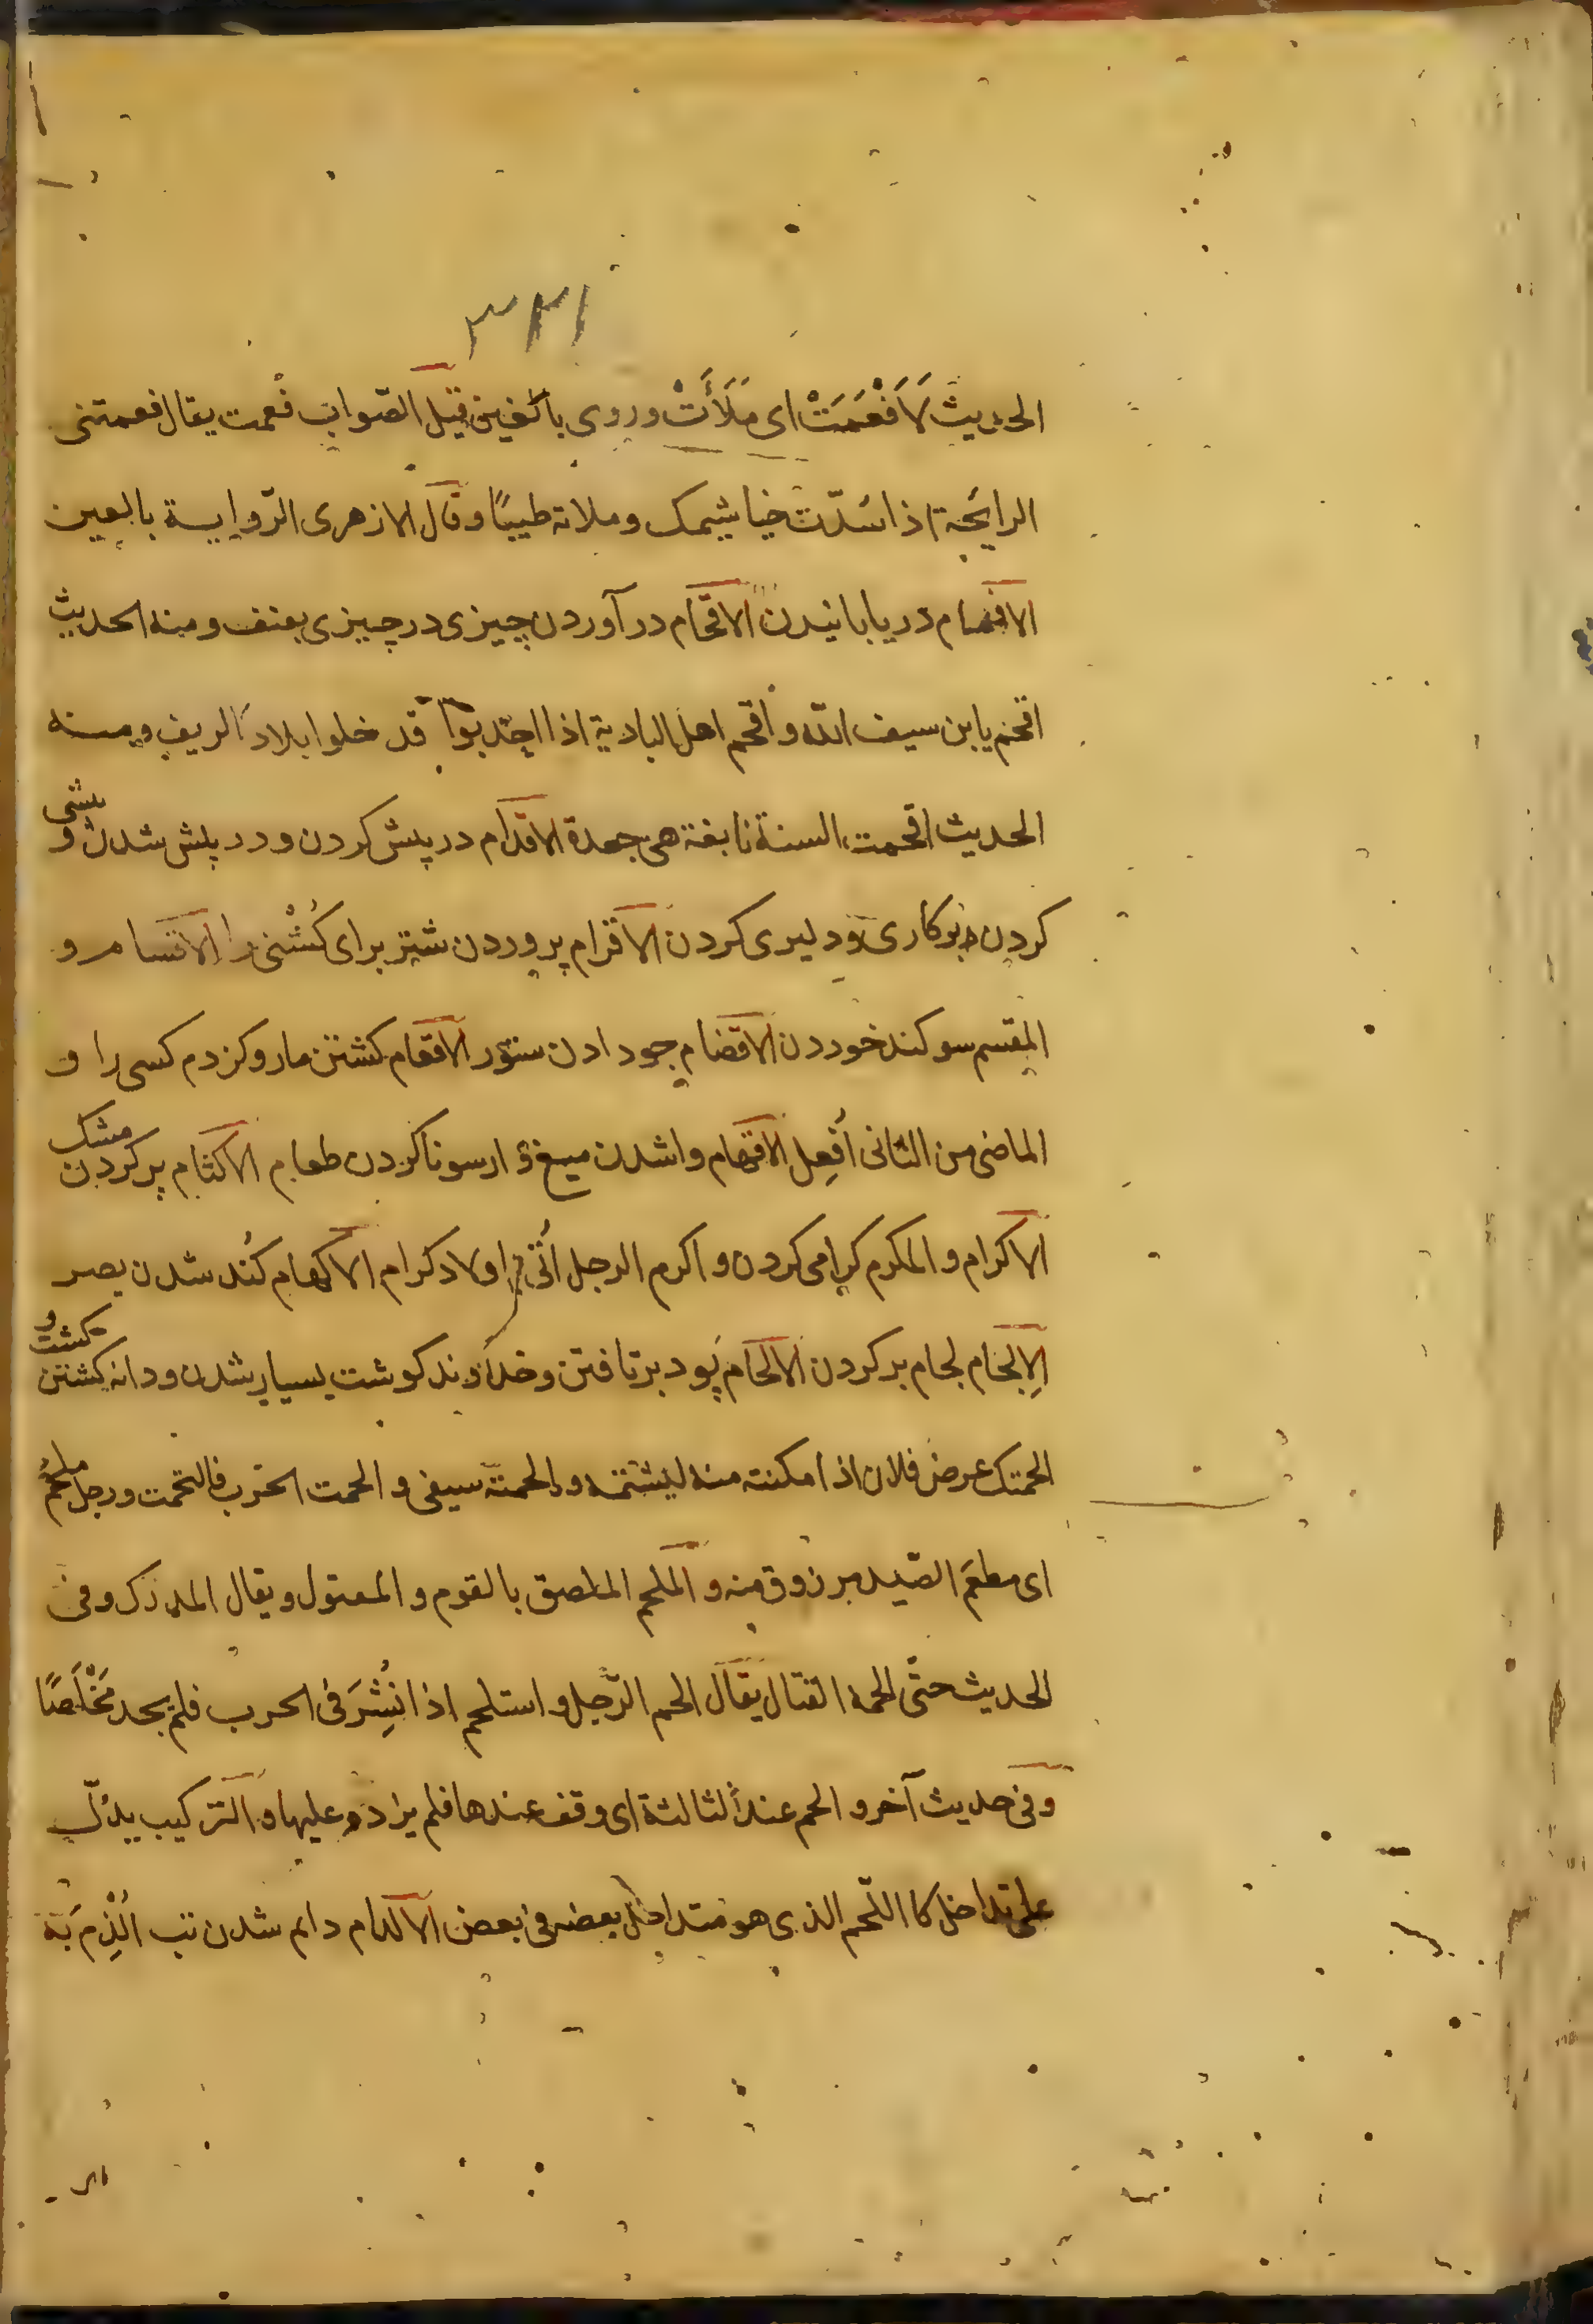 ۳۳۱
الحدیث لَاَفْعَمَتْ ای مَلَأَتْ وروی بالغین قیل الصّواب فعمت یقال فعمتنی
الرایحة اذا سُدّت خیاشیمک وملاته طیبًا وقال الازهری الرّوایة بالعین
الافهام دریابانیدن الاقحام درآوردن چیزی در چیزی بعنف ومنه الحدیث
اقحم یا بن سیف الله واقحم اهل البادیة اذا اجدبوا قد خلوا بلاد الریف ومنه
الحدیث اقحمت السنة نابغة هی جعدة الاقدام در پیش کردن ودر پیش شدن و پیشی
کردن بر کاری ودلیری کردن الاقرام پروردن شتر برای کُشْنی را الاقسام و
المقسم سوکند خوردن الاقضام جو دادن ستور الاقعام کشتن مار وکزدم کسی را و
الماضی من الثانی اُفْعِل الاقهام واشدن میغ و ارسو ناکردن طعام الاکتام پر کردن مشک
الاکرام والمکرم کرامی کردن واکرم الرجل اتی باولاد کرام الاکهام کُند شدن بصر
الاِلجام لجام بر کردن الالحام پود برتافتن وخداوند کوشت بسیار شدن ودانه کشتن کشت و
الحمتک عرض فلان اذا امکنته منه لیشتمه والحمته سیفی والحمت الحرب فالتحمت ورجل ملحَم
ای مطعَم الصّید مرزوق منه والملحم الملصق بالقوم والمقتول ویقال المدرک وفی
الحدیث حتّی الحمه القتال یقال الحم الرّجل واستلحم اذا نُشِرَ فی الحرب فلم یجد مَخْلَصًا
وفی حدیث آخر والحم عند الثالثة ای وقف عندها فلم یزاده علیها والترکیب یدلّ
علی تداخل کا اللّحم الذی هو متداخل بعضه فی بعض الالدام دایم شدن تب